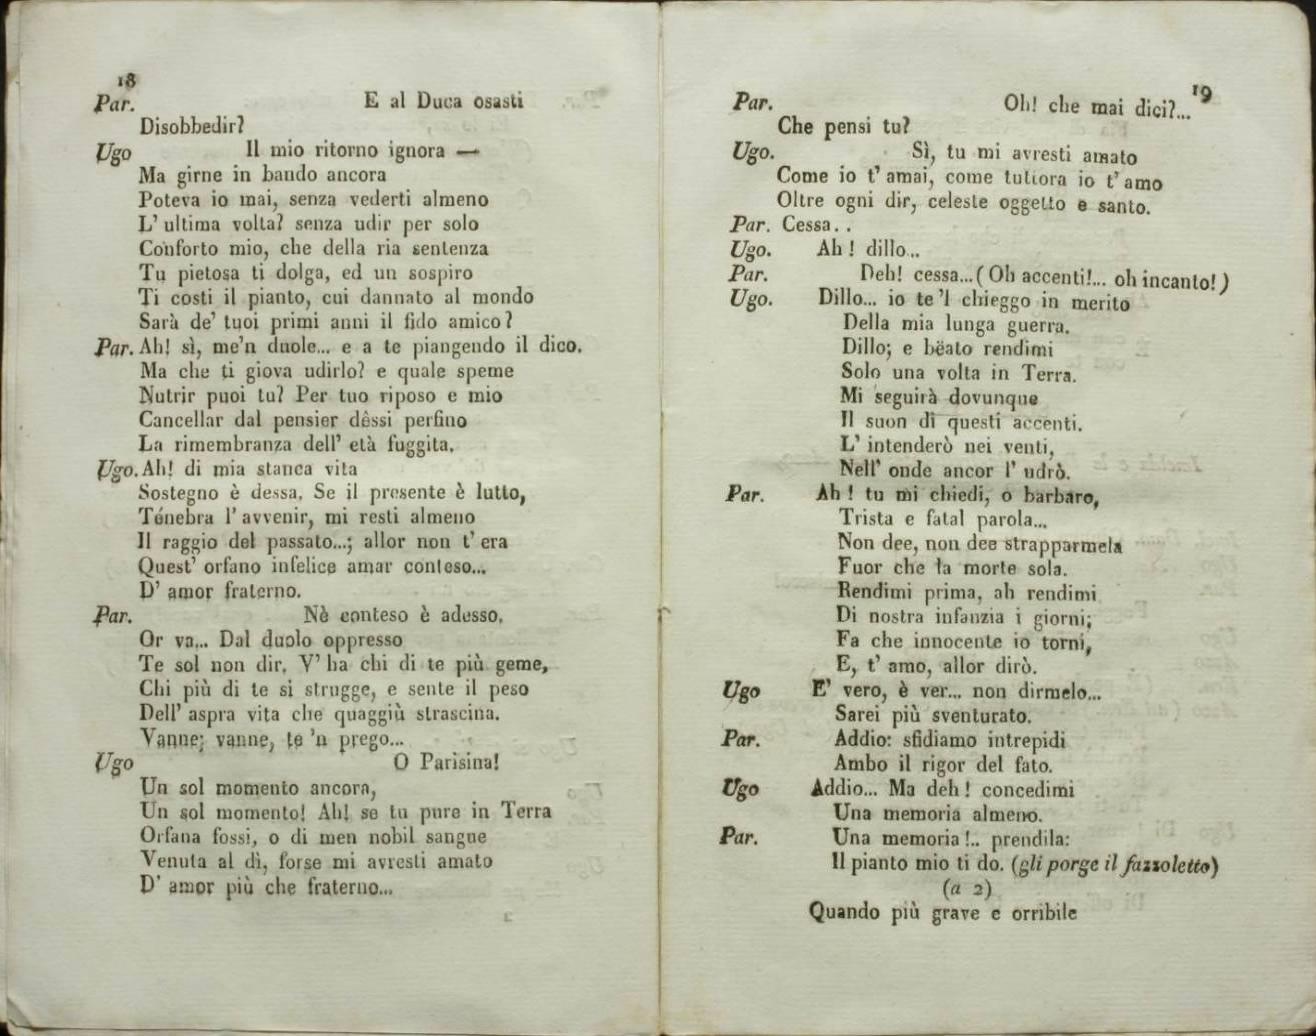 18
Par. E al Duca osasti
Disobbedir?
Ugo Il mio ritorno ignora —
Ma girne in bando ancora
Poteva io mai, senza vederti almeno
L' ultima volta? senza udir per solo
Conforto mio, che della ria sentenza
Tu pietosa ti dolga, ed un sospiro
Ti costi il pianto, cui dannato al mondo
Sarà de' tuoi primi anni il fido amico?
Par. Ah! sì, me'n duole... e a te piangendo il dico.
Ma che ti giova udirlo? e quale speme
Nutrir puoi tu? Per tuo riposo e mio
Cancellar dal pensier dêssi perfino
La rimembranza dell' età fuggita.
Ugo. Ah! di mia stanca vita
Sostegno è dessa. Se il presente è lutto,
Ténebra l'avvenir, mi resti almeno
Il raggio del passato...; allor non t' era
Quest' orfano infelice amar conteso...
D' amor fraterno.
Par. Nè conteso è adesso.
Or va... Dal duolo oppresso
Te sol non dir. V' ha chi di te più geme,
Chi più di te si strugge, e sente il peso
Dell' aspra vita che quaggiù strascina.
Vanne; vanne, te 'n prego...
Ugo O Parisina!
Un sol momento ancora,
Un sol momento! Ah! se tu pure in Terra
Orfana fossi, o di men nobil sangue
Venuta al dì, forse mi avresti amato
D' amor più che fraterno...
19
Par. Oh! che mai dici?...
Che pensi tu?
Ugo. Sì, tu mi avresti amato
Come io t' amai, come tuttora io t' amo
Oltre ogni dir, celeste oggetto e santo.
Par. Cessa. .
Ugo. Ah! dillo...
Par. Deh! cessa...(Oh accenti!... oh incanto!)
Ugo. Dillo... io te 'l chieggo in merito
Della mia lunga guerra.
Dillo; e bëato rendimi
Solo una volta in Terra.
Mi seguirà dovunque
Il suon di questi accenti.
L' intenderò nei venti,
Nell' onde ancor l' udrò.
Par. Ah! tu mi chiedi, o barbaro,
Trista e fatal parola...
Non dee, non dee strapparmela
Fuor che la morte sola.
Rendimi prima, ah rendimi
Di nostra infanzia i giorni;
Fa che innocente io torni,
E, t' amo, allor dirò.
Ugo E' vero, è ver... non dirmelo...
Sarei più sventurato.
Par. Addio: sfidiamo intrepidi
Ambo il rigor del fato.
Ugo Addio... Ma deh! concedimi
Una memoria almeno.
Par. Una memoria!.. prendila:
Il pianto mio ti do. (gli porge il fazzoletto)
(a 2)
Quando più grave e orribile